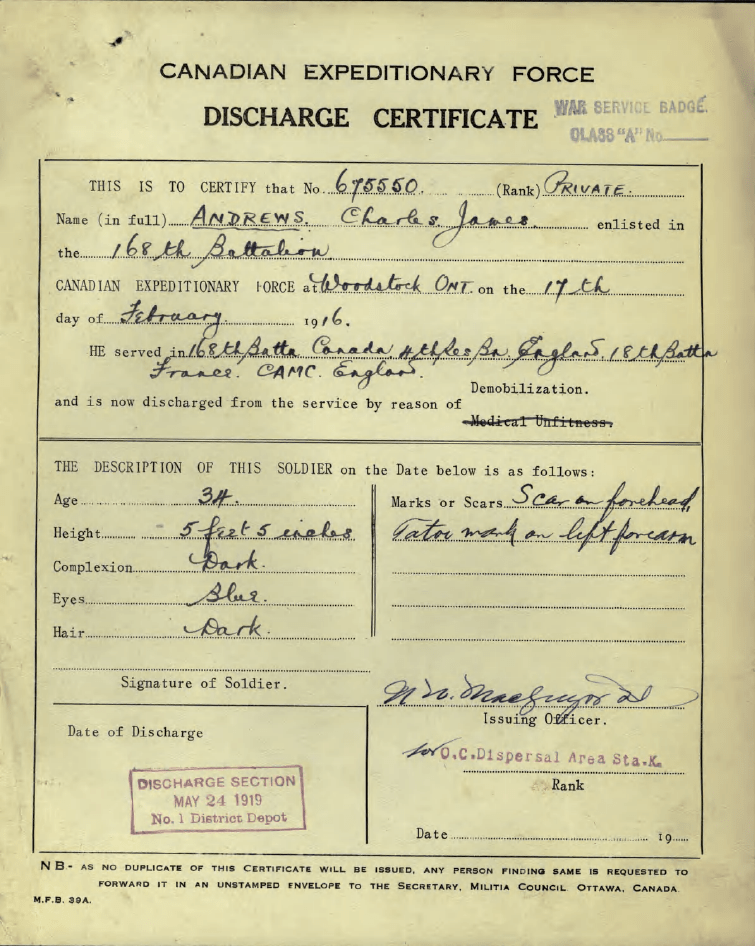 CANADIAN EXPEDITIONARY FORCE
DISCHARGE CERTIFICATE
WAR SERVICE BADGE.
CLASS "A" No
THIS IS TO CERTIFY that No. 675550. (Rank) PRIVATE.
Name (in full) ANDREWS. Charles James. enlisted in
the 168th Battalion
CANADIAN EXPEDITIONARY FORCE at Woodstock ONT. on the 17th
day of February. 1916.
HE served in 168th Battn Canada, 4th Res Bn England, 18th Battn
France. CAMC. England.
Demobilization.
and is now discharged from the service by reason of
Medical Unfitness.
THE DESCRIPTION OF THIS SOLDIER on the Date below is as follows:
Age 34.
Height 5 feet 5 inches
Complexion Dark.
Eyes Blue.
Hair Dark.
Marks or Scars Scar on forehead,
Tatoo mark on left forearm
Signature of Soldier.
Issuing Officer.
for O.C. Dispersal Area Sta. K.
Rank
Date 19
Date of Discharge
DISCHARGE SECTION
MAY 24 1919
No. 1 District Depot
NB- AS NO DUPLICATE OF THIS CERTIFICATE WILL BE ISSUED, ANY PERSON FINDING SAME IS REQUESTED TO
FORWARD IT IN AN UNSTAMPED ENVELOPE TO THE SECRETARY, MILITIA COUNCIL OTTAWA, CANADA.
M.F.B. 39A.